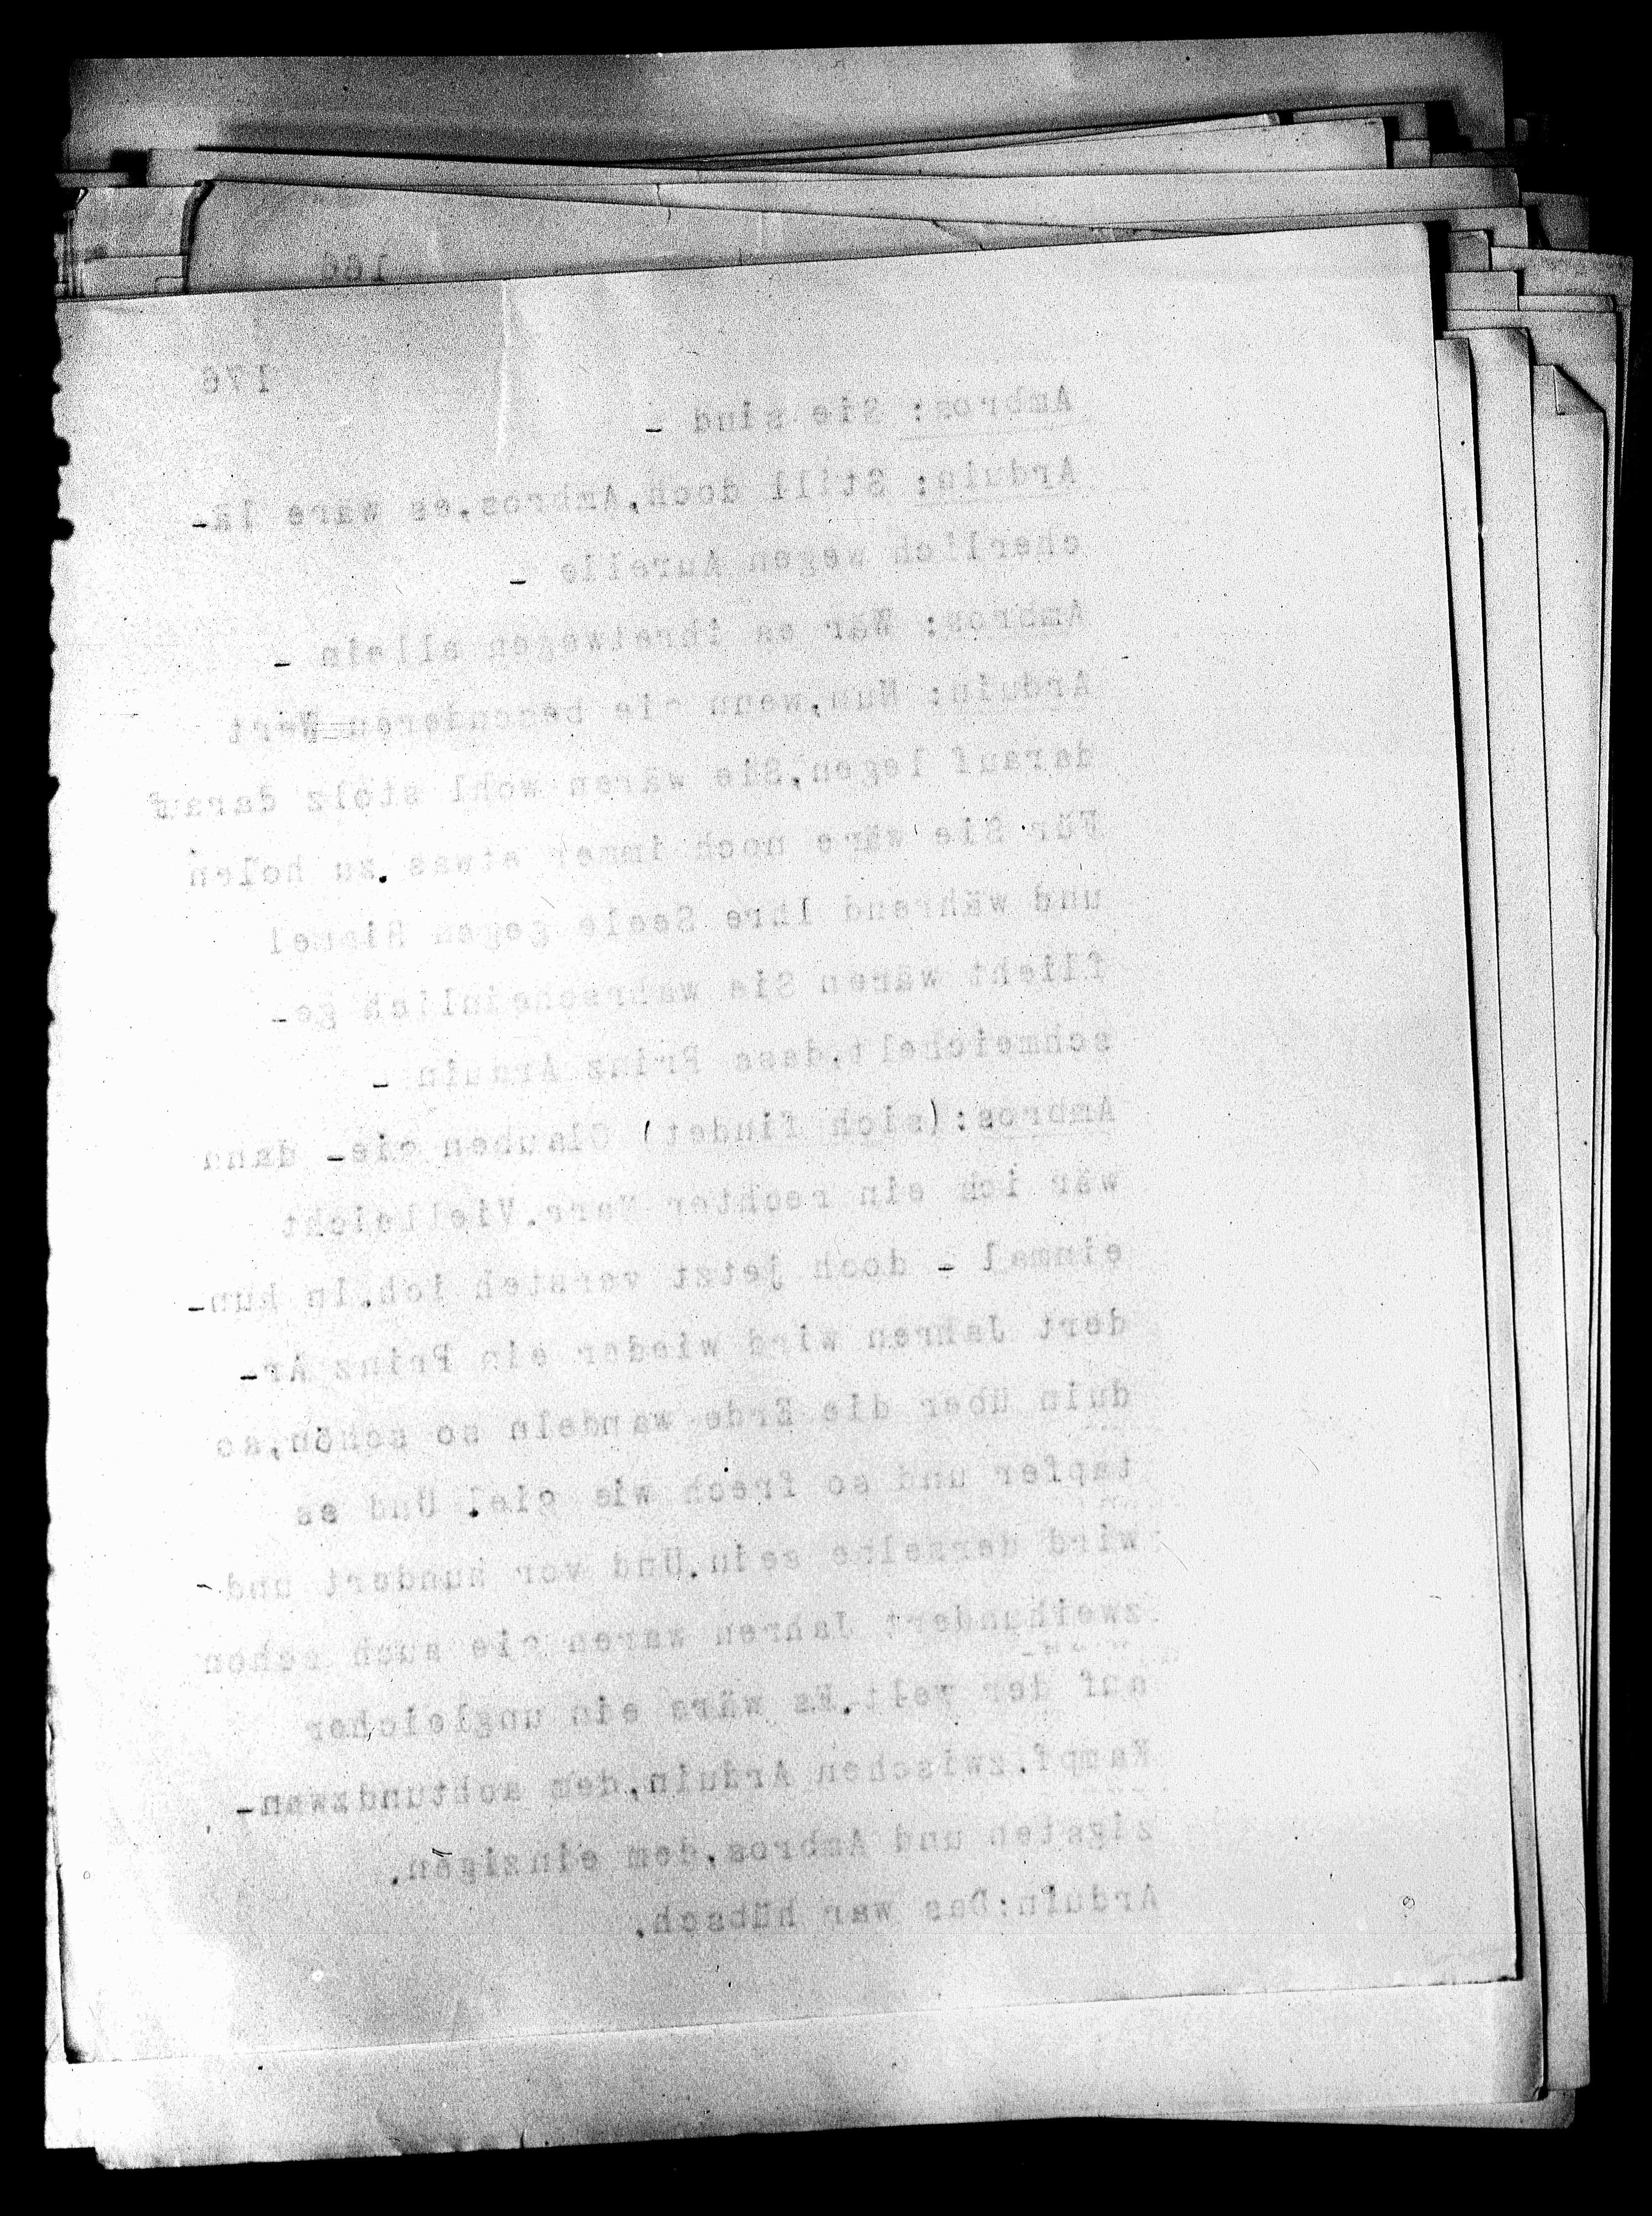 166
176
Ambros: Sie sind -
Arduin: Still doch,Ambros,es wäre lä-
cherlich wegen Aurelie -
Ambros: Wär es ihretwegen allein -
Arduin: Nun,wenn sie besonderen Wert
darauf legen,Sie wären wohl stolz darauf
Für Sie wäre noch immer etwas zu holen
und während Ihre Seele gegen Himmel
flieht wären Sie wahrscheinlich ge-
schmeichelt,dass Prinz Arduin -
Ambros:(sich findet) Glauben sie- dann
wär ich ein rechter Narr.Vielleicht
einmal - doch jetzt versteh ich.In hun-
dert Jahren wird wieder ein Prinz Ar-
duin über die Erde wandeln so schön,so
tapfer und so frech wie sie. Und es
wird derselbe sein.Und vor hundert und
zweihundert Jahren waren sie auch schon
auf der welt.Es wäre ein ungleicher
Kampf.zwischen Arduin,dem achtundzwan-
zigsten und Ambros,dem einzigen.
Arduin:Das war hübsch.